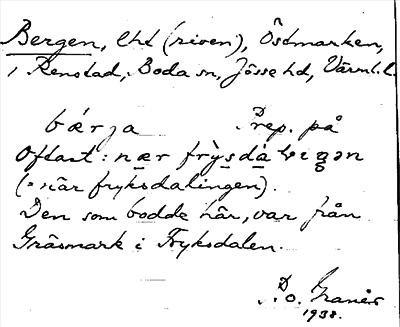 Bergen, lht (riven), Östmarken,
i Renstad, Boda sn, Jösse hd, Värml. l.
bærja Prep. på
Oftast: nær frysdaligen
(= när fryksdalingen).
Den som bodde här, var från
Gräsmark i Fryksdalen.
P. O. Granér
1938.